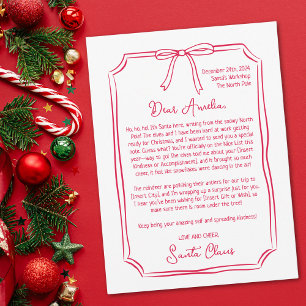 December 24th, 2024
Santa's Workshop
The North Pole
Dear Amelia,
Ho, ho, ho! It's Santa here, writing from the snowy North
Pole! The elves and I have been hard at work getting
ready for Christmas, and I wanted to send you a special
note. Guess what? You're officially on the Nice List this
year—way to go! The elves told me about your [Insert
Kindness or Accomplishment], and it brought so much
cheer, it felt like snowflakes were dancing in the air!
The reindeer are polishing their antlers for our trip to
[Insert City], and I'm wrapping up a surprise just for you.
I hear you've been wishing for [Insert Gift or Wish], so
make sure there is room under the tree!
Keep being your amazing self and spreading kindness!
LOVE AND CHEER,
Santa Claus